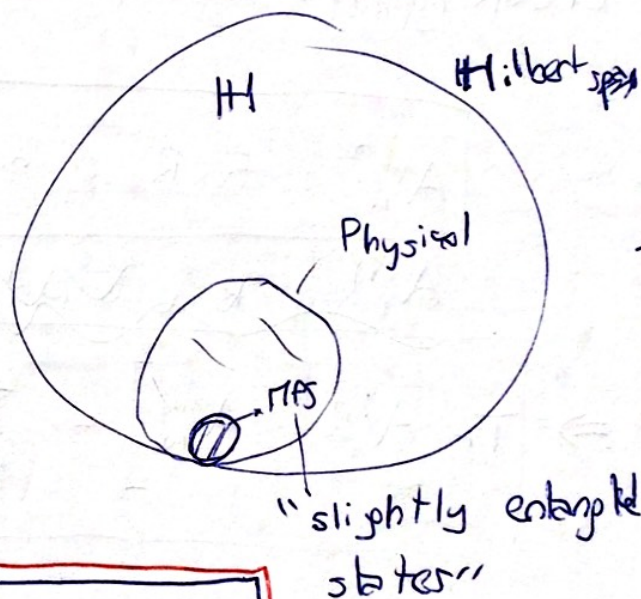 Hilbert space
H
Physical
MPS
"slightly entangled
states"